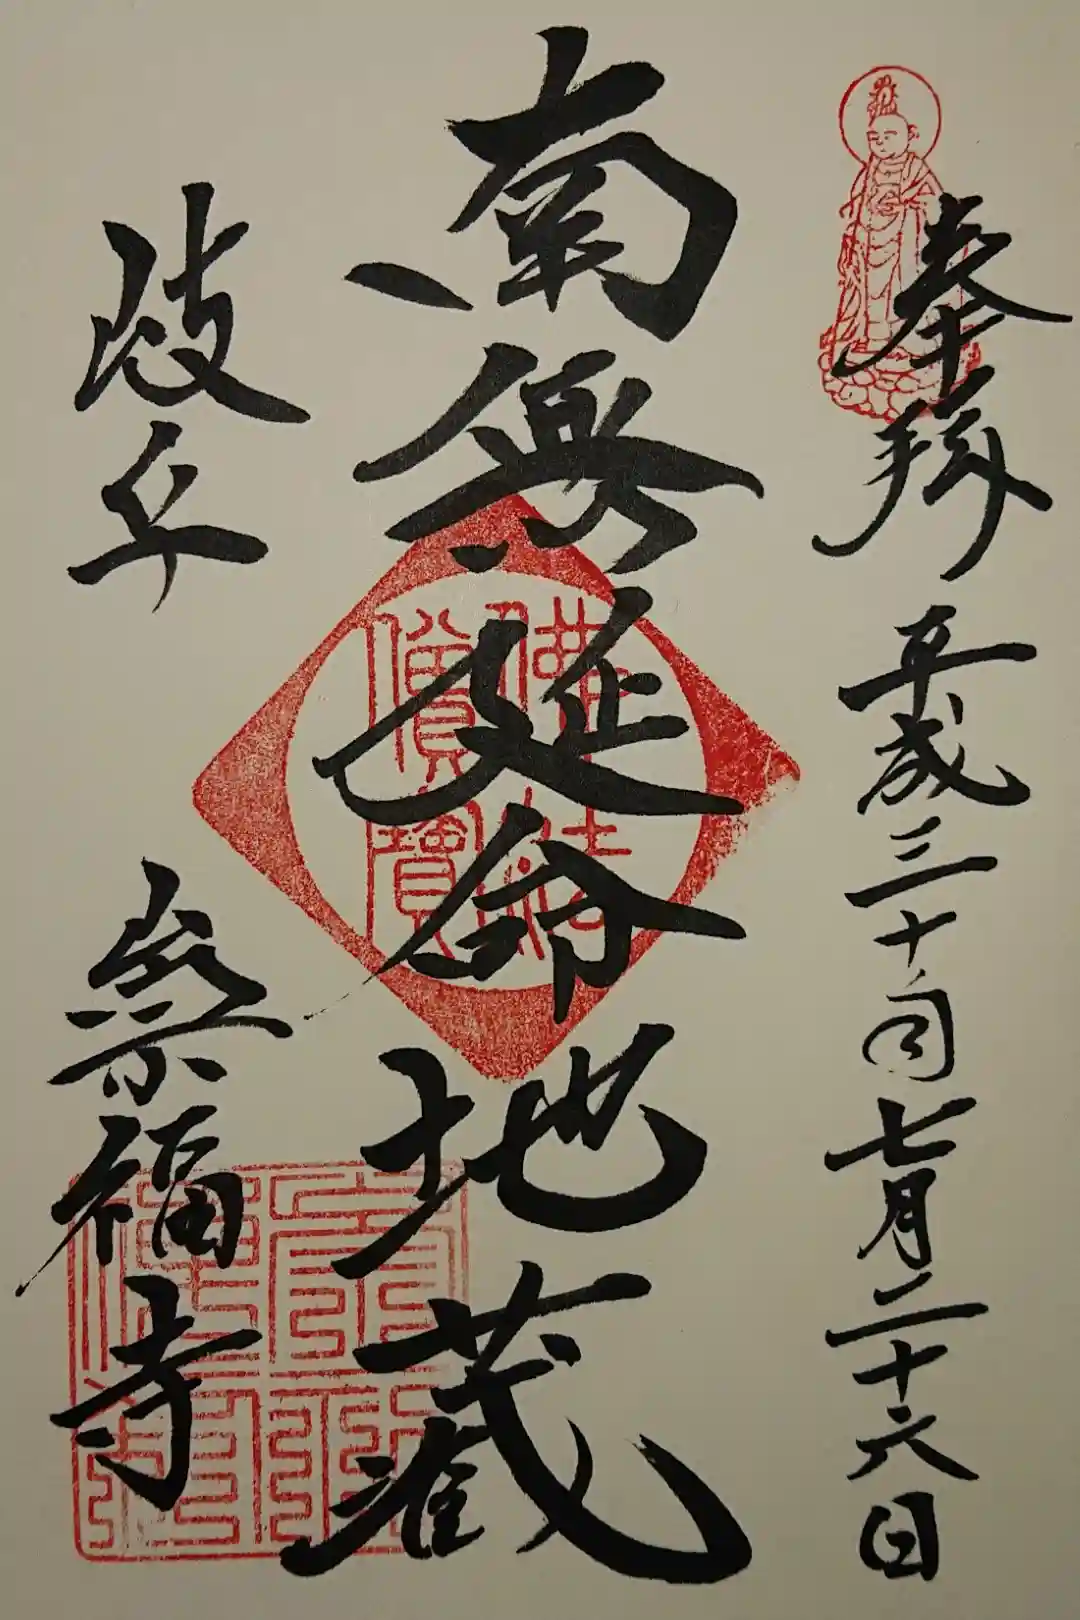 奉拝 平成三十年七月二十六日
南無延命地蔵
岐阜 崇福寺
佛法僧寶